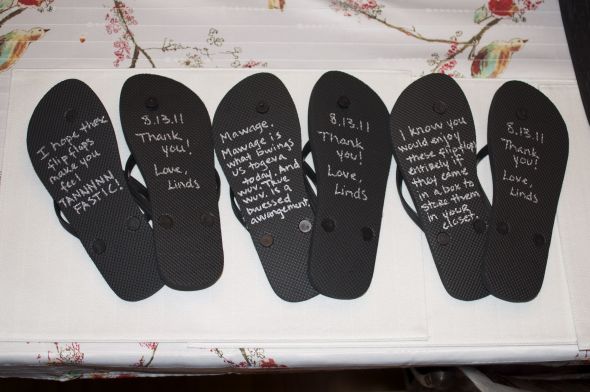 I hope these
flip flops
make you
feel
TANNNNN
FASTIC!
8.13.11
Thank
you!
Love,
Linds
Mawage.
Mawage is
what bwings
us togeva
today. And
wuv. True
wuv is a
bwessed
awwangement.
8.13.11
Thank
you!
Love,
Linds
I know you
would enjoy
these flipflops
entirely if
they came
in a box to
store them
in your
closet.
8.13.11
Thank
you!
Love,
Linds